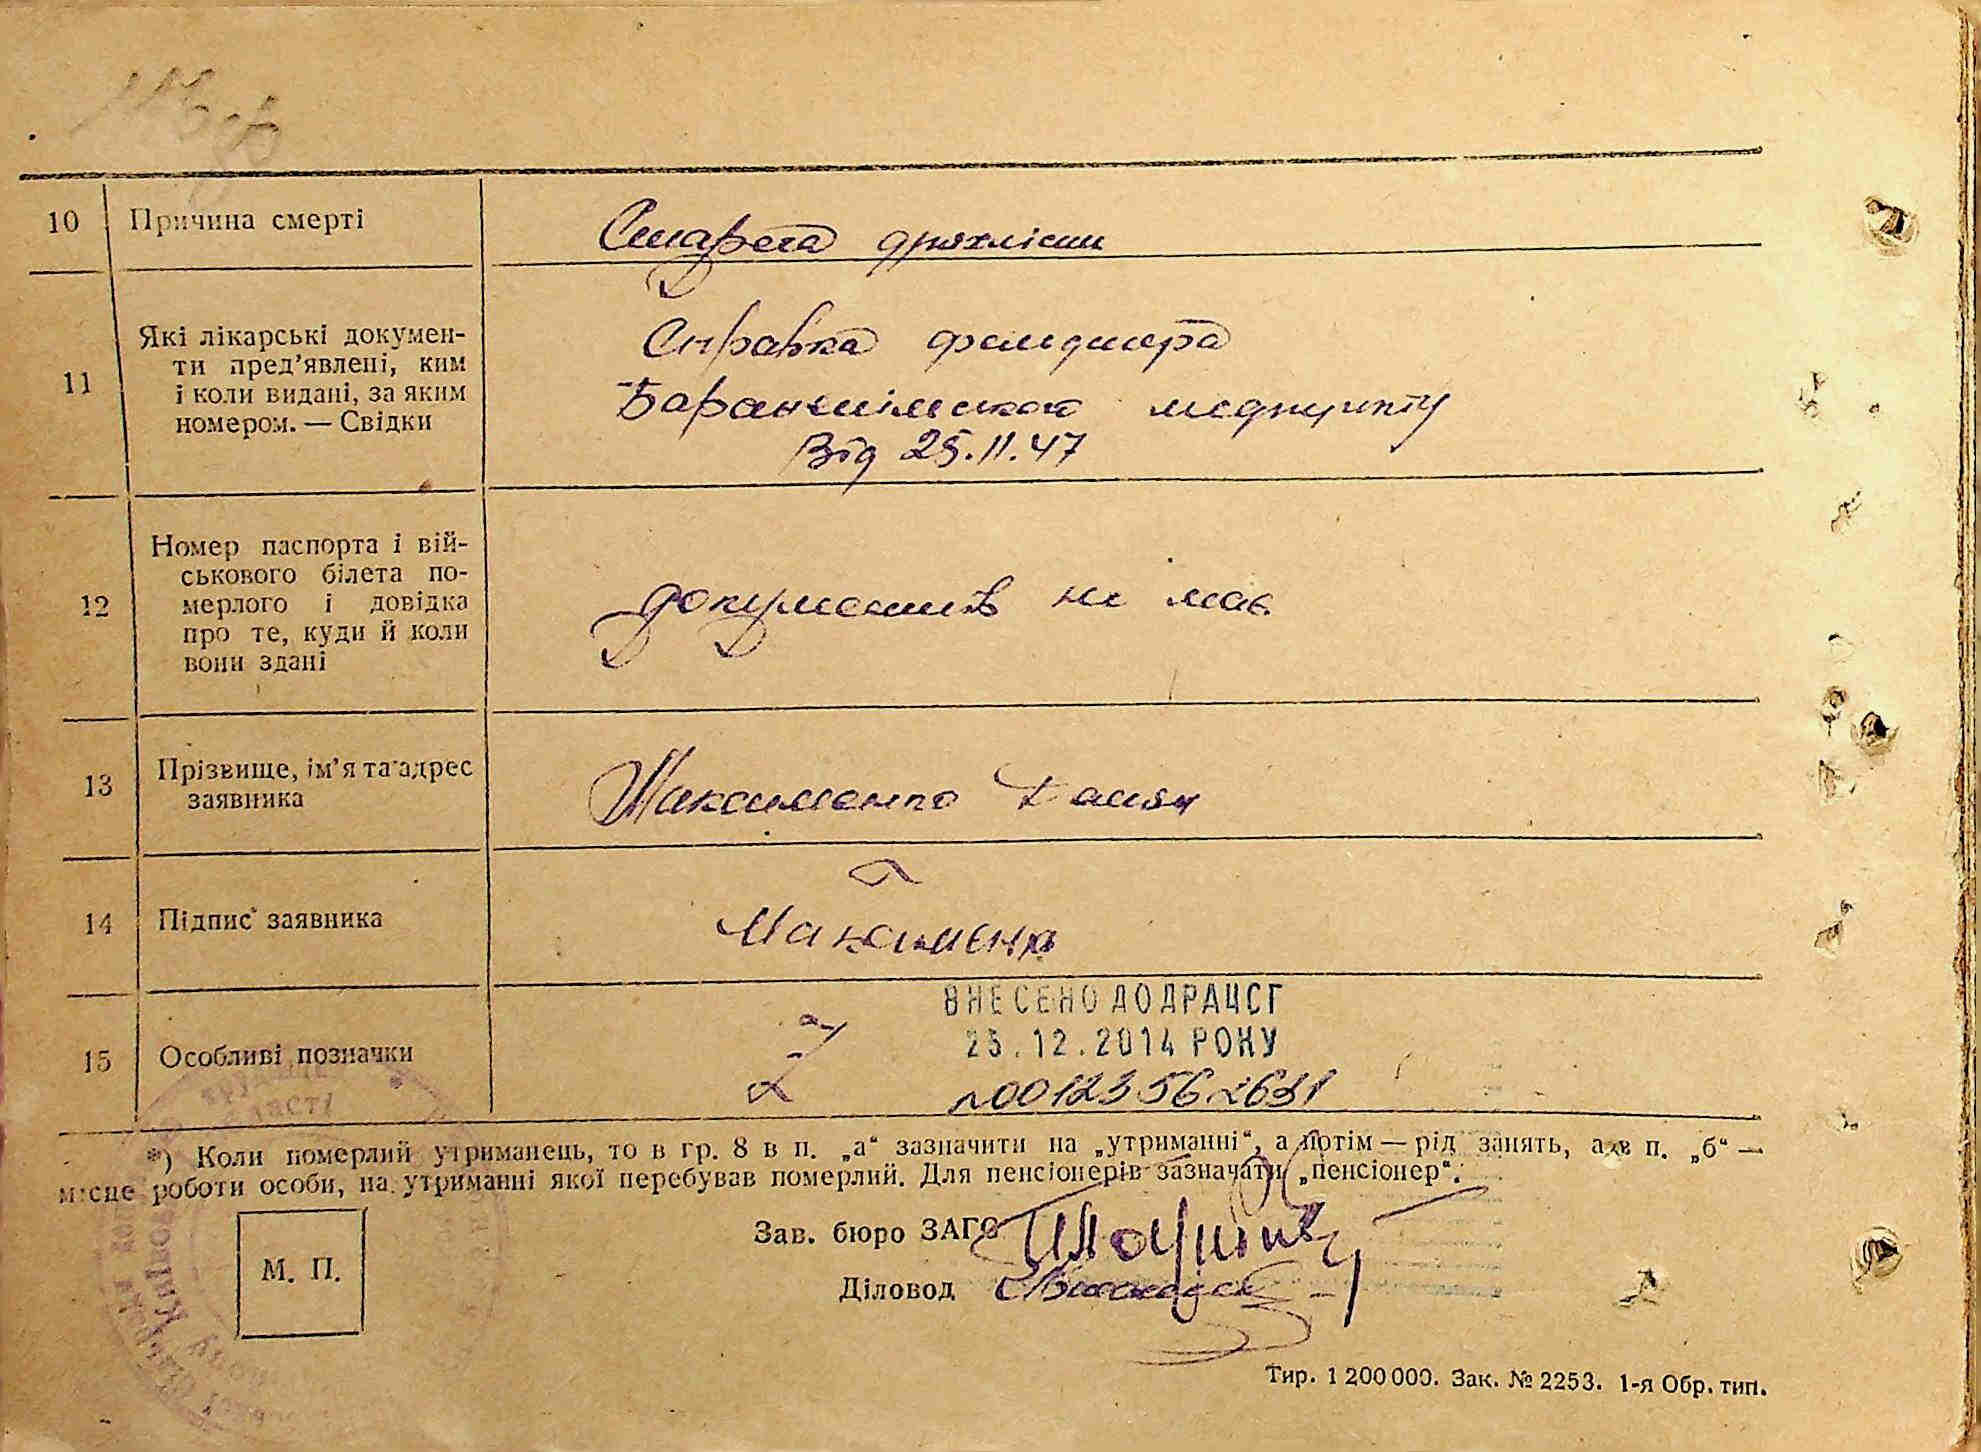 10 Причина смерті
Стареча дряхлість
11 Які лікарські докумен-
ти пред’явлені, ким
і коли видані, за яким
номером. — Свідки
Справка фельдшера
медпункту
від 25.11.47
12 Номер паспорта і вій-
ськового білета по-
мерлого і довідка
про те, куди й коли
вони здані
документів не має
13 Прізвище, ім’я та адрес
заявника
Максименко
14 Підпис заявника
Максименко
15 Особливі позначки
ВНЕСЕНО ДО ДРАЦСГ
25.12.2014 РОКУ
*) Коли померлий утриманець, то в гр. 8 в п. „а“ зазначити на „утриманні“, а потім — рід занять, а в п. „б“ —
місце роботи особи, на утриманні якої перебував померлий. Для пенсіонерів зазначати „пенсіонер“.
Зав. бюро ЗАГС
М. П.
Діловод
Тир. 1 200 000. Зак. № 2253. 1-я Обр. тип.